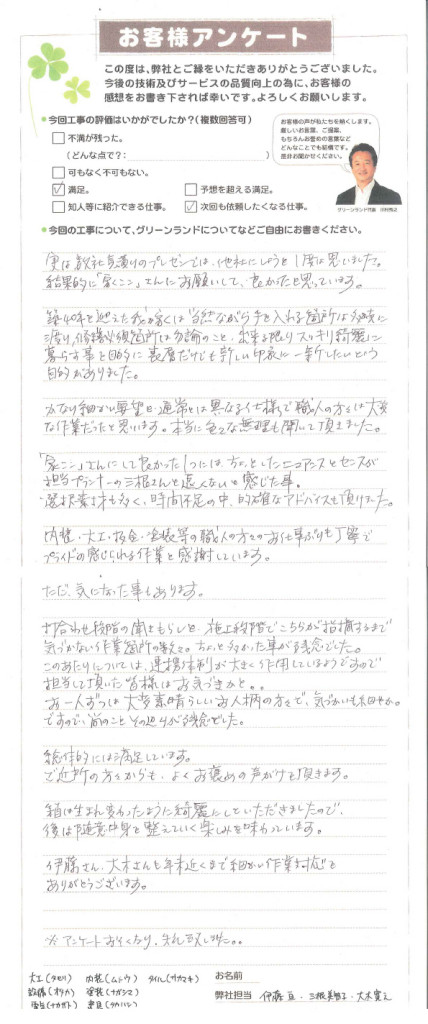 お客様アンケート
この度は、弊社とご縁をいただきありがとうございました。
今後の技術及びサービスの品質向上の為に、お客様の
感想をお書き下されば幸いです。よろしくお願いします。
今回工事の評価はいかがでしたか？(複数回答可)
不満が残った。
(どんな点で？: )
可もなく不可もない。
満足。
予想を超える満足。
知人等に紹介できる仕事。
次回も依頼したくなる仕事。
お客様の声が私たちを納くします。
厳しいお言葉、ご提案、
もちろんお誉めの言葉など
どんなことでも結構です。
是非お聞かせください。
グリーンランド代表
今回の工事について、グリーンランドについてなどご自由にお書きください。
実は数社見積りのプレゼンでは、他社にしようと1度は思いました。
結果的に「家ここ」さんにお願いして、良かったと思っています!
築40年を迎えた我が家は当然ながら手を入れる箇所は多岐に
渡り、修繕必須箇所は勿論のこと、出来る限りスッキリ綺麗に
暮らす事を目的に表層だけでも新しい印象に一新したいという
目的がありました。
かなり細かい要望と通常とは異なる仕様で職人の方々は大変
な作業だったと思います。本当に色々な無理も聞いて頂きました。
「家ここ」さんにして良かった1つには、ちょっとしたニュアンスとセンスが
担当プランナーの三根さんと遠くないと感じた事。
選択素材も多く、時間不足の中、的確なアドバイスも頂けました。
内装・大工・板金・塗装等の職人の方々のお仕事ぶりも丁寧で
プライドの感じられる作業と感謝しています。
ただ、気になった事もあります。
打合わせ段階の聞きもらしと、施工段階でこちらが指摘するまで
気づかない作業箇所の数々。ちょっと多かった事が残念でした。
このあたりについては、連携体制が大きく作用しているようですので
担当して頂いた皆様はお気づきかと。。
お一人ずつは大変素晴らしいお人柄の方々で、気づかいも細やか。
ですので、尚のことその辺りが残念でした。
総体的には満足しています。
ご近所の方々からも、よくお褒めの声がけを頂きます。
箱は生まれ変わったように綺麗にしていただきましたので、
後は随意中身を整えていく楽しみを味わっています。
伊藤さん、大木さんも年末近くまで細かい作業対応を
ありがとうございます。
※アンケートおそくなり、失礼致しました。。
お名前
弊社担当 伊藤 亘・三根美智子・大木寛之
大工(タセリ) 内装(ムトウ) タイル(サカマキ)
設備(オオカ) 塗装(ナガシマ)
電気(ナカガト) 建具(タカハシ)